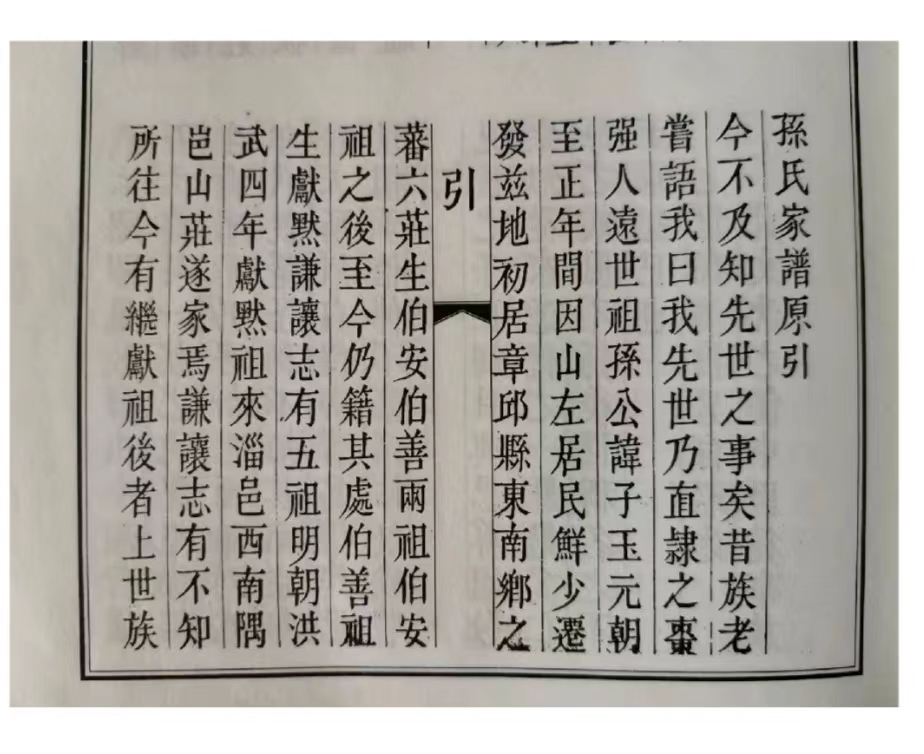 孫氏家譜原引
今不及知先世之事矣昔族老
嘗語我曰我先世乃直隸之棗
强人遠世祖孫公諱子玉元朝
至正年間因山左居民鮮少遷
發兹地初居章邱縣東南鄉之
引
蕃六莊生伯安伯善兩祖伯安
祖之後至今仍籍其處伯善祖
生獻默謙讓志有五祖明朝洪
武四年獻默祖來淄邑西南隅
岜山莊遂家焉謙讓志有不知
所往今有繼獻祖後者上世族